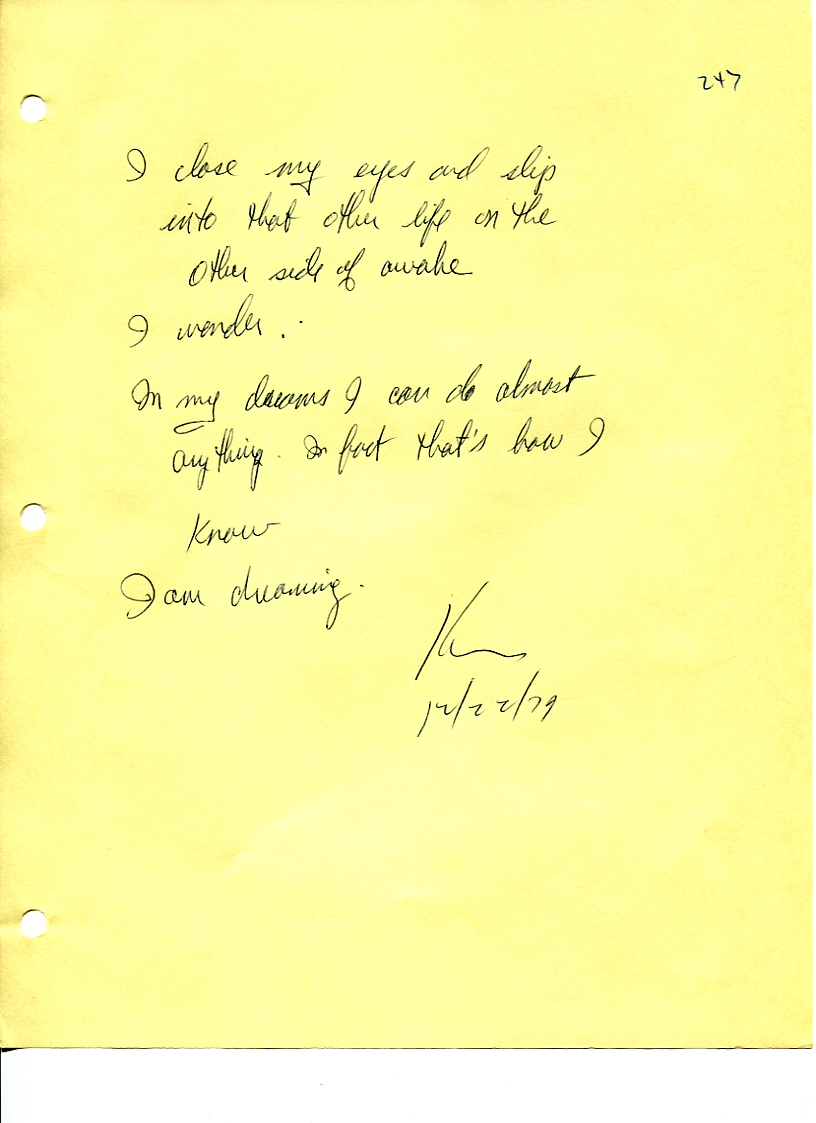 247
I close my eyes and slip
into that other life on the
other side of awake
I wonder..
In my dreams I can do almost
anything. In fact that's how I
know
I am dreaming.
12/22/79